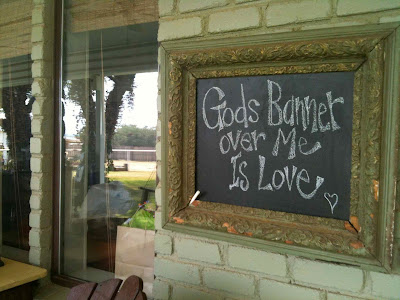 Gods Banner
over Me
Is Love